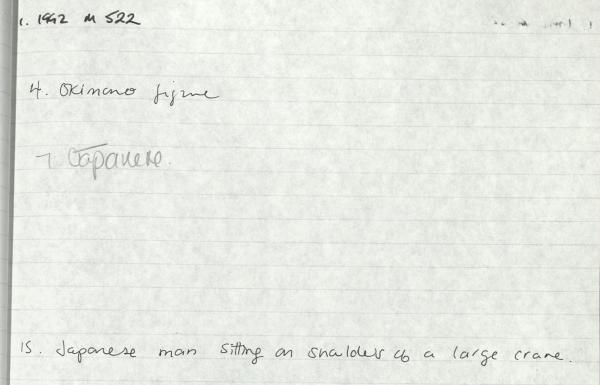 1. 1992 M 522
4. Okimono figure
7 Japanese.
15. Japanese man sitting on shoulders of a large crane.